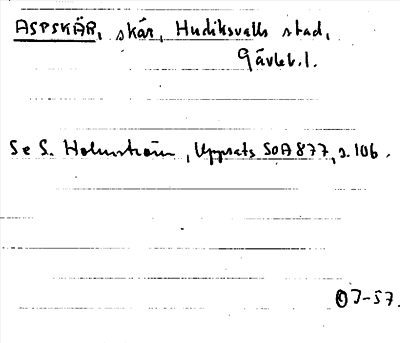 ASPSKÄR, skär, Hudiksvalls stad,
Gävleb. l.
Se S. Holmström, Uppsats SOA 877, s. 106.
OJ-57.